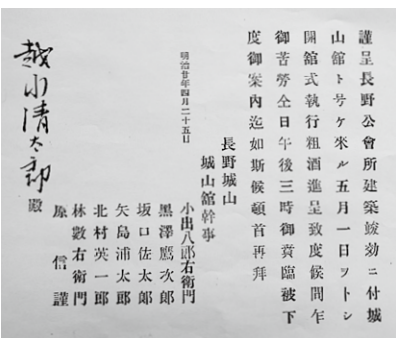 謹呈長野公會所建築竣効ニ付城
山館ト号ケ来ル五月一日ヲトシ
開舘式執行粗酒進呈致度候間乍
御苦勞仝日午後三時御賁臨被下
度御案內迄如斯候頓首再拜
長野城山
城山舘幹事
明治廿年四月二十五日
小出八郞右衛門
黒澤鷹次郎
坂口佐太郞
矢島浦太郎
北村英一郎
林數右衛門
原信謹
越水清太郎殿